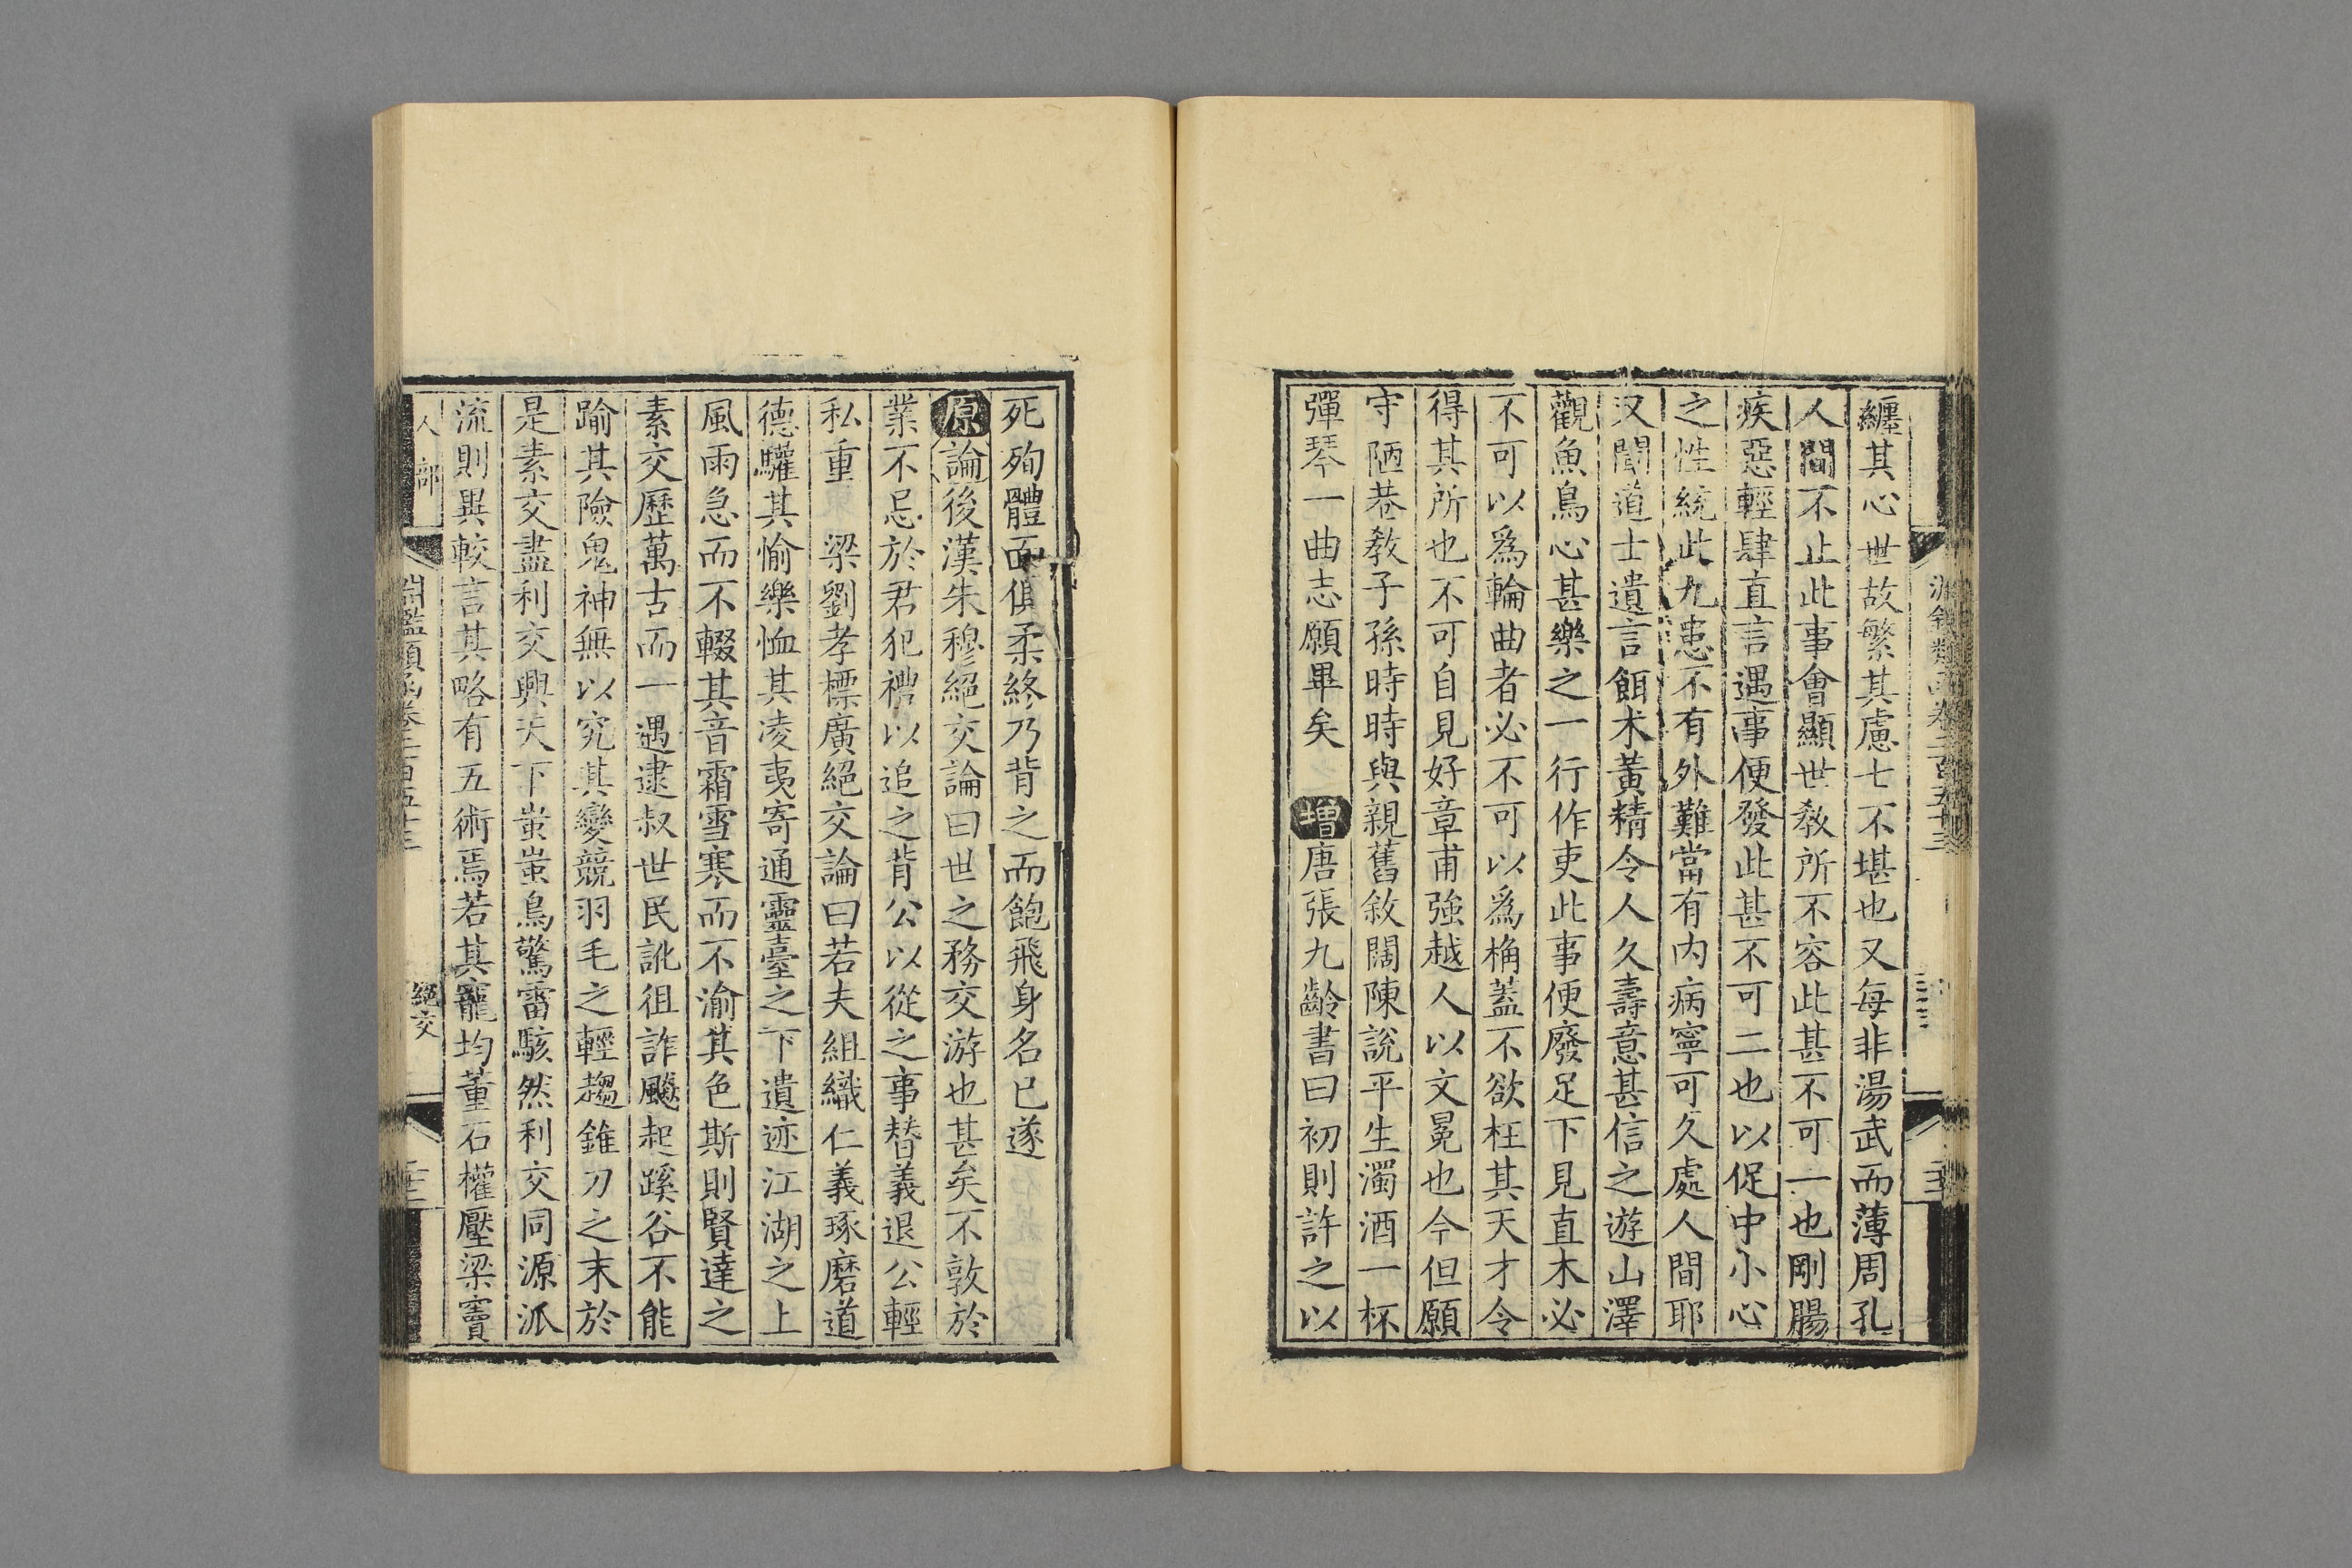 纏其心世故繁其慮七不堪也又每非湯武而薄周孔
人間不止此事會顯世教所不容此甚不可一也剛腸
疾惡輕肆直言遇事便發此甚不可二也以促中小心
之性統此九患不有外難當有內病寧可久處人間耶
又聞道士遺言餌术黃精令人久壽意甚信之遊山澤
觀魚鳥心甚樂之一行作吏此事便廢足下見直木必
不可以爲輪曲者必不可以爲桷蓋不欲枉其天才令
得其所也不可自見好章甫強越人以文冕也今但願
守陋巷教子孫時時與親舊敘闊陳說平生濁酒一杯
彈琴一曲志願畢矣 增唐張九齡書曰初則許之以
死殉體面俱柔終乃背之而飽飛身名已遂
原論後漢朱穆絕交論曰世之務交游也甚矣不敦於
業不忌於君犯禮以追之背公以從之事替義退公輕
私重 梁劉孝標廣絕交論曰若夫組織仁義琢磨道
德驩其愉樂恤其凌夷寄通靈臺之下遺迹江湖之上
風雨急而不輟其音霜雪寒而不渝其色斯則賢達之
素交歷萬古而一遇逮叔世民訛徂詐飈起蹊谷不能
踰其險鬼神無以究其變競羽毛之輕趨錐刀之末於
是素交盡利交興天下蚩蚩鳥驚雷駭然利交同源派
流則異較言其略有五術焉若其寵均董石權壓梁竇
人部
淵鑑類函卷二百五十三
絕交